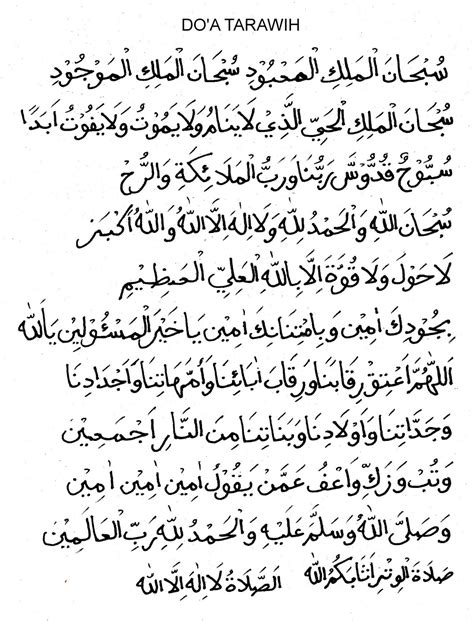 DO'A TARAWIH
سُبْحَانَ الْمَلِكِ الْمَعْبُوْدِ سُبْحَانَ الْمَلِكِ الْمَوْجُوْدِ
سُبْحَانَ الْمَلِكِ الْحَيِّ الَّذِيْ لَا يَنَامُ وَلَا يَمُوْتُ وَلَا يَفُوْتُ اَبَدًا
سُبُّوْحٌ قُدُّوْسٌ رَبُّنَا وَرَبُّ الْمَلَائِكَةِ وَالرُّحْ
سُبْحَانَ اللّٰهِ وَالْحَمْدُ لِلّٰهِ وَلَا اِلٰهَ اِلَّا اللّٰهُ وَاللّٰهُ اَكْبَرْ
لَا حَوْلَ وَلَا قُوَّةَ اِلَّا بِاللّٰهِ الْعَلِيِّ الْعَظِيْمِ
بِجُوْدِكَ اٰمِيْن وَبِامْتِنَانِكَ اٰمِيْن يَا خَيْرَ الْمَسْئُوْلِيْنَ يَااَللّٰه
اَللّٰهُمَّ اَعْتِقْ رِقَابَنَا وَرِقَابَ اٰبَائِنَا وَاُمَّهَاتِنَا وَاَجْدَادِنَا
وَجَدَّاتِنَا وَاَوْلَادِنَا وَبَنَاتِنَا مِنَ النَّارِ اَجْمَعِيْن
وَتُبْ وَزَكِّ وَاعْفُ عَمَّنْ يَقُوْلُ اٰمِيْن اٰمِيْن اٰمِيْن
وَصَلَّى اللّٰهُ وَسَلَّمَ عَلَيْهِ وَالْحَمْدُ لِلّٰهِ رَبِّ الْعَالَمِيْنَ
صَلَاةَ الْوِتْرِ اَثَابَكُمُ اللّٰه الصَّلَاةُ لَا اِلٰهَ اِلَّا اللّٰه